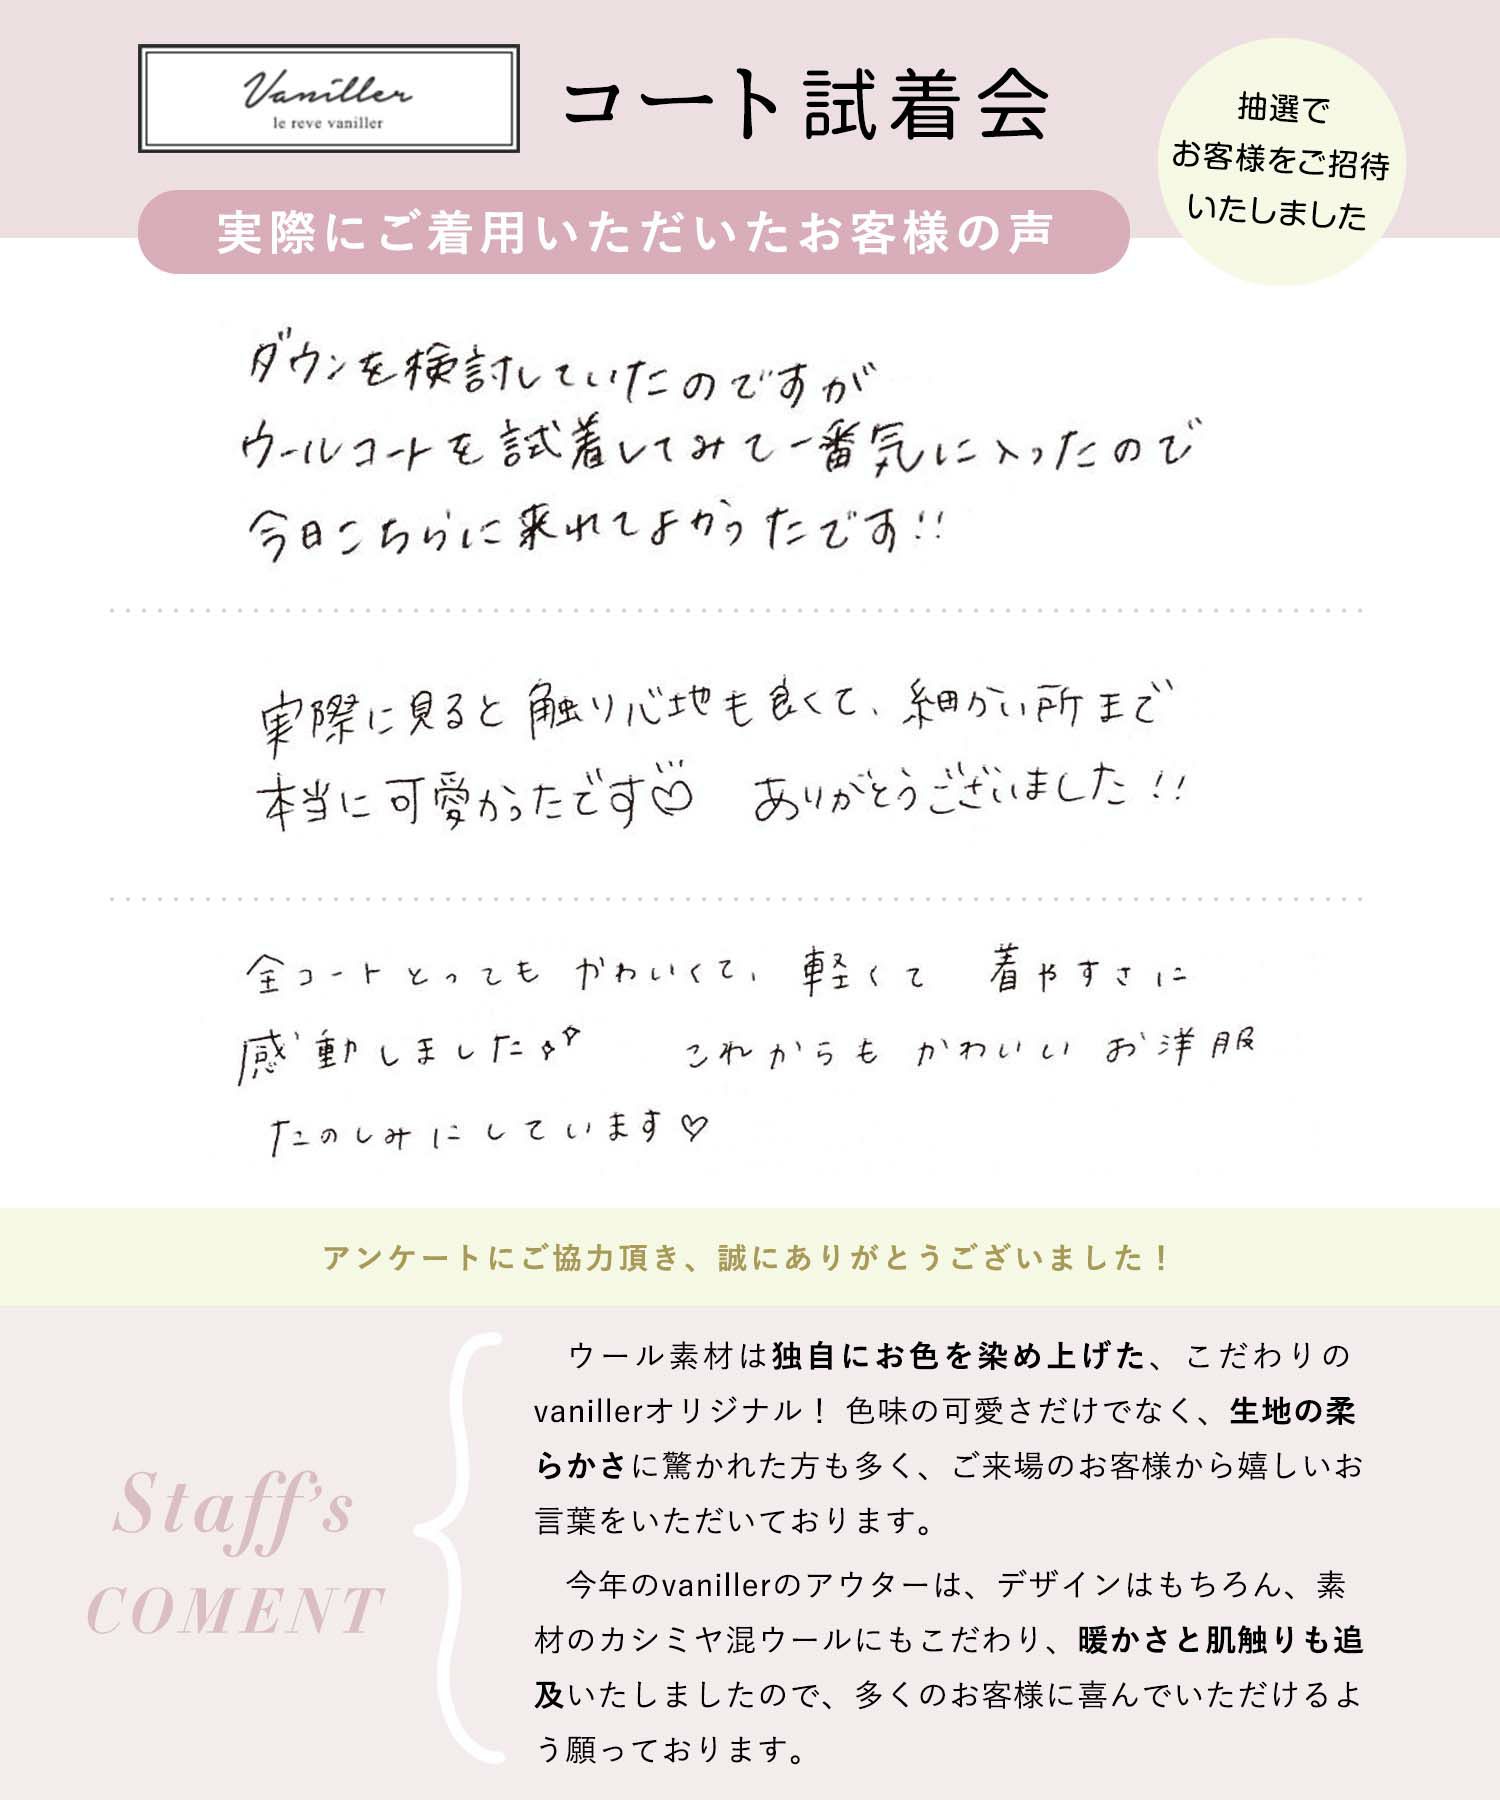 Vaniller
le reve vaniller
コート試着会
抽選で
お客様をご招待
いたしました
実際にご着用いただいたお客様の声
ダウンを検討していたのですが
ウールコートを試着してみて一番気に入ったので
今日こちらに来れてよかったです!!
実際に見ると触り心地も良くて、細かい所まで
本当に可愛かったです♡ ありがとうございました!!
全コートとってもかわいくて、軽くて 着やすさに
感動しました これからも かわいい お洋服
たのしみにしています♡
アンケートにご協力頂き、誠にありがとうございました！
Staff's
COMENT
ウール素材は独自にお色を染め上げた、こだわりの
vanillerオリジナル！ 色味の可愛さだけでなく、生地の柔
らかさに驚かれた方も多く、ご来場のお客様から嬉しいお
言葉をいただいております。
今年のvanillerのアウターは、デザインはもちろん、素
材のカシミヤ混ウールにもこだわり、暖かさと肌触りも追
及いたしましたので、多くのお客様に喜んでいただけるよ
う願っております。